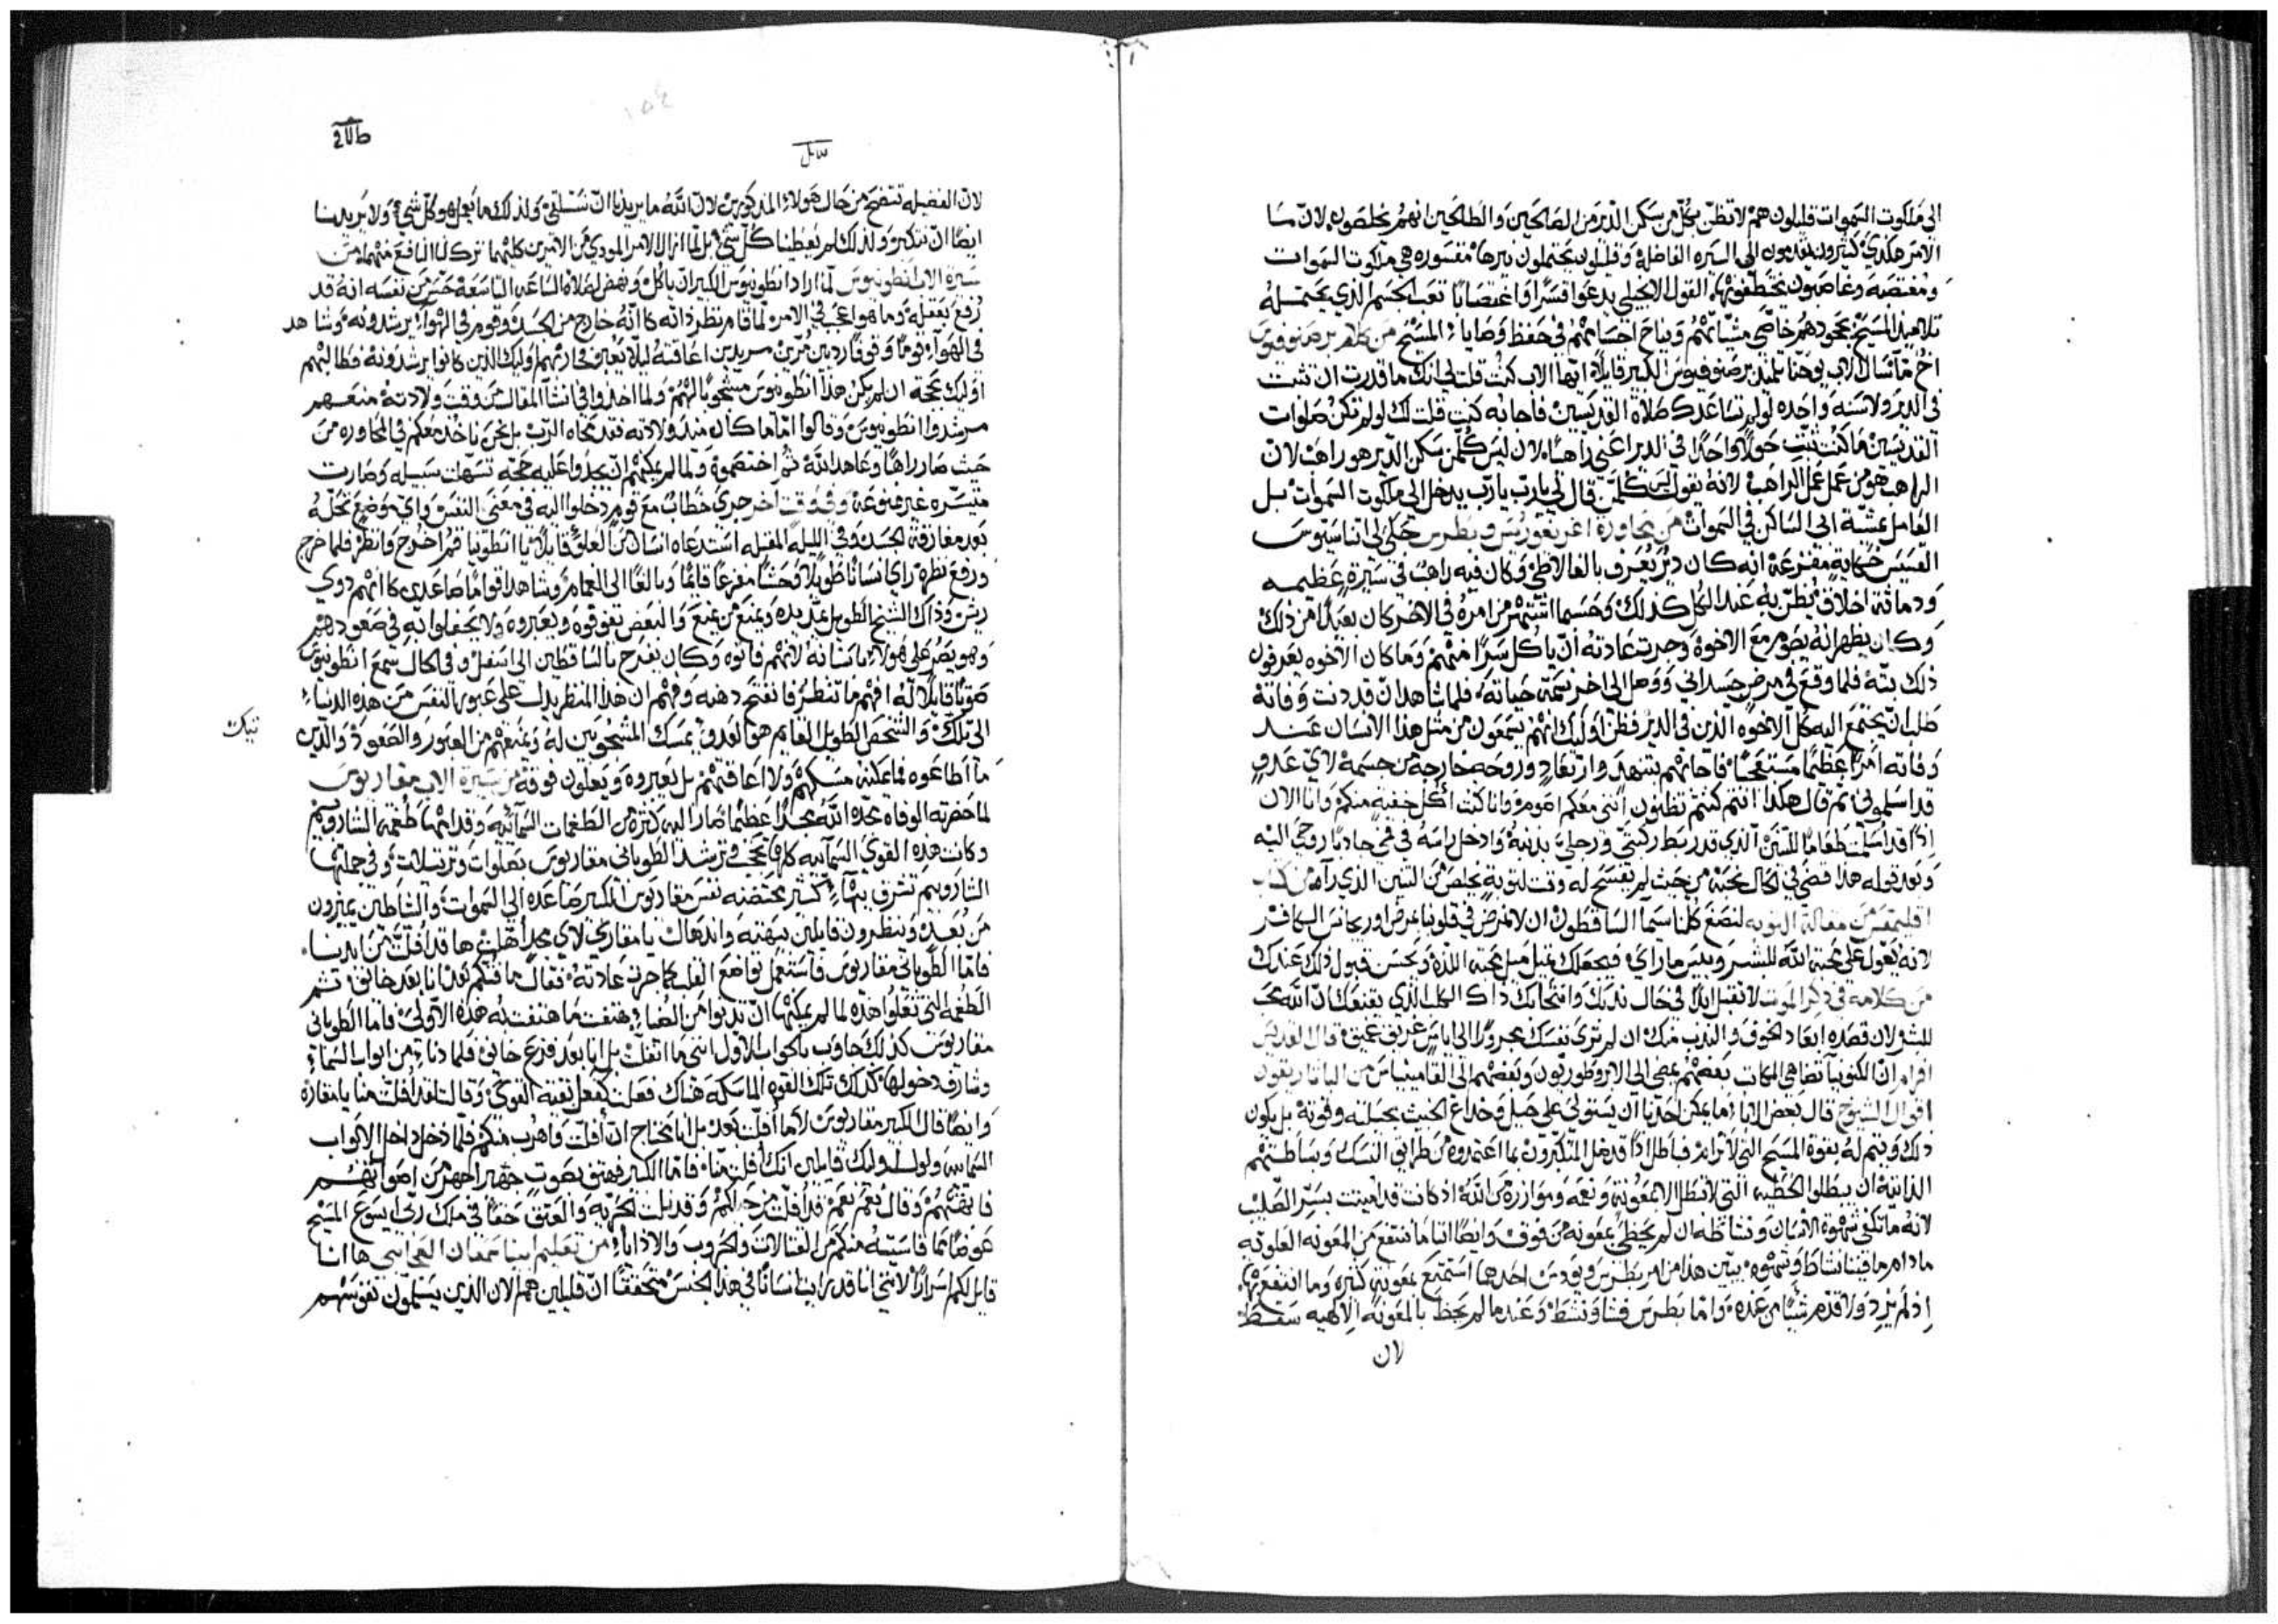 الى ملكوت السموات قليلون هم لا تظن بكل من سكن الدير من الصالحين والطالحين انهم يخلصون لان
الامر هكذي كثيرون يتقدمون الى السيره الفاضله وقليلون يحتملون نيرها مقسوره هي ملكوت السموات
ومغتصبه وغاصبون يختطفونها القول الانجيلي يدعوا قسرًا واغتصابًا تعب الجسم الذي يحتمله
تلاميذ المسيح بجحودهم خاصي مشياتهم ونياح اجسامهم في حفظ وصايا المسيح من كلام برصنوفيوس
اخ ما سال الاب يوحنا تلميذ برصنوفيوس الكبير قايلًا ايها الاب كنت قلت لي انك ما قدرت ان تثبت
في الدير ولا سنه واحده لو لم تساعدك صلاة القديسين فاجابه كنت قلت لك لو لم تكن صلوات
القديسين ما كنت تثبت حولًا واحدًا في الدير اعني راهبًا لان ليس كلمن سكن الدير هو راهب لان
الراهب هو من عمل عمل الراهب لانه يقول ليس كلمن قال لي يارب يارب يدخل الى ملكوت السموات بل
العامل مشية ابي الساكن في السموات من محاورة اغريغوريس وبطرس حكى لي اثناسيوس
القسيس حكاية مفزعة انه كان دير يعرف بالغالاطي وكان فيه راهب في سيرة عظيمه
ودماثة اخلاق يظن به عند الكل كذلك وحسبما استبان من امره في الاخر كان بعيدًا من ذلك
وكان يظهر انه يصوم مع الاخوة وجرت عادته ان ياكل سرًا منهم وما كان الاخوه يعرفون
ذلك بتة فلما وقع في مرض جسداني ووصل الى اخر نسمة حياته فلما شاهد ان قد دنت وفاتة
طلب ان يجتمع اليه كل الاخوه الذين في الدير فظن اوليك انهم يسمعون من مثل هذا الانسان عند
وفاته امرًا عظيمًا فاجابهم بتنهد وارتعاد وروحه خارجة من جسمه لاي عدو
قد اسلموني ثم قال هكذا انتم كنتم تظنون انني معكم اصوم وانا كنت اكل خفية منكم وانا الان
اذًا قد اسلمت طعامًا للتنين الذي قد ربط ركبتي ورجلي بذنبه وادخل راسه في فمي جاذبًا روحي اليه
وبعد قوله هذا قضى في الحال نحبة من حيث لم يفسح له وقت لتوبة يخلص من التنين الذي رآه من كتاب
اقليمقس من مقالة التوبه لنصغ كلنا سيما الساقطون ان لا نمرض في قلوبنا مرض اوريجانس الكافر
لانه يعول على محبة الله للبشر وبيس ما راي فيجعلك تميل ميل محبة اللذه ويحسن قبول ذلك عندك
من كلامه في ذكر الموت لا تقبل ابدًا في حال ندبك وانتحابك ذاك الكلب الذي يقنعك ان الله محب
للبشر لان قصده ابعاد الخوف والندب منك ان لم ترى نفسك مجرورًا الى اياس غريق عميق قال القديس
افرام ان الكنوبيا تضاهي المكاتب بعضهم يمضي الى الابروطوريون وبعضهم الى القامينياس من الباتاريقون
اقوال الشيوخ قال بعض الابا ما يمكن احدنا ان يستولي على حيل وخداع الخبيث بحيلته وقوته بل يكون
ذلك ويتم له بقوة المسيح التي لا ترام فباطل اذًا قد ضل المتكبرون بما اعتمدوه من طرايق النسك وبساطتهم
الذاتية ان يبطلوا الخطيه التي لا تبطل الا بمعونة ونعمه وموازرة من الله اذ كانت قد اميتت بسر الصليب
لانه ما تكفي شهوة الانسان ونشاطه ان لم يحظى بمعونه من فوق وايضًا اننا ما ننتفع من المعونه العلويه
ما دام ما فينا نشاط وشهوه يبين هذا من امر بطرس ويودس احدهما استمتع بمعونة كثيره وما انتفع بها
اذ لم يرد ولا قدم شيًا من عنده واما بطرس فشا ونشط وعند ما لم يحظ بالمعونه الالهيه سقط
لان
لان الفضيله تتضح من حال هولاء المذكورين لان الله ما يريدنا ان نستلقي ولذلك ما يعمل هو كل شيء ولا يريدنا
ايضًا ان نتكبر ولذلك لم يعطينا كل شيء بل لما ازال الامر الموذي من الامرين كليهما ترك لنا النافع منهما من
سيرة الاب انطونيوس لما اراد انطونيوس الكبير ان ياكل ونهض لصلاة الساعة التاسعة حس من نفسه انه قد
رفع بعقله وما هو اعجب في الامر لما قام نظر ذاته كانه خارج من الجسد وقوم في الهواء يرشدونه وشاهد
في الهواء قومًا وقوفًا رديين مرين مريدين اعاقته ليلا يعبر اوليك الذين كانوا يرشدونه فطالبهم
اوليك بحجة ان لم يكن هذا انطونيوس مشجوبًا لهم ولما اخذوا في انشا المقال من وقت ولادته منعهم
مرشدوا انطونيوس وقالوا اما ما كان منذ ولادته فقد محاه الرب بل نحن ناخذ معكم في المحاوره من
حيث صار راهبًا وعاهد الله ثم اختصموه ولما لم يمكنهم ان يجدوا عليه حجة تسهلت سبيله وصارت
متيسره غير ممنوعة وفي وقت اخر جرى خطاب مع قوم دخلوا اليه في معنى النفس واي موضع تحله
بعد مفارقة الجسد وفي الليله المقبله استدعاه انسان من العلو قايلًا يا انطونيا قم اخرج وانظر فلما خرج
ورفع نظره راى انسانًا طويلًا وحشًا مفزعًا قايمًا وبالغًا الى الغمام وشاهد اقوامًا صاعدين كانهم ذوي
ريش وذاك الشيخ الطويل يمد يده ويمنع من يمنع والبعض يفوقوه ويعبروه ولا يحفلوا به في صعودهم
وهو يصر على هولاء باسنانه لانهم فاتوه وكان يفرح بالساقطين الى اسفل وفي الحال سمع انطونيوس
صوتًا قايلًا له افهم ما تنظر فانفتح ذهنه وفهم ان هذا المنظر يدل على عبور النفس من هذه الدنيا
الى تلك والشخص الطويل القايم هو العدو يمسك المشجوبين له ويمنعهم من العبور والصعود والذين
ما اطاعوه فما يمكنه مسكهم ولا اعاقتهم بل يعبروه ويعلون فوقه من سيرة الاب مقاريوس
لما حضرته الوفاه مجده الله مجدًا عظيمًا صار اليه كثرة من الطغمات السمائيه وقدامها طغمة الشاروبيم
وكانت هذه القوى السمائيه كلها ترشد الطوباني مقاريوس بصلوات وترتيلات وفي جملتها
الشاروبيم تشرق ببهاء كثير محتضنه نفس مقاريوس الكبير صاعده الى السموات والشياطين يمرون
من بعد وينظرون قايلين ببهتة واندهال يا مقاري لاي مجد اهلت ها قد افلت من ايدينا
فاما الطوباني مقاريوس فاستعمل تواضع القلب كما جرت عادته فقال ما فتكم بعد انا بعد خايف ثم
الطغمة التي تعلوا هذه لما لم يمكنها ان تدنوا من الضياء هتفت بما هتفت به هذه الاولى فاما الطوباني
مقاريوس كذلك جاوب بالجواب الاول انني ما افلت بل انا بعد فزع خايف فلما دنا من ابواب السماء
وشارف دخولها كذلك تلك القوه الماسكه هناك فعلت كفعل بقية القوى وقالت لقد افلت منا يا مقاره
وايضًا قال الكبير مقاريوس لا ما افلت بعد بل انا محتاج ان افلت واهرب منكم فلما دخل داخل الابواب
السمائيه ولول اوليك قايلين انك افلت منا فاما الكبير فهتف بصوت جهير اجهر من اصواتهم
فابهتهم وقال نعم نعم قد افلت من حيلكم وقد نلت الحرية والعتق حقًا في ملك ربي يسوع المسيح
عوضًا مما قاسيته منكم من القتالات والحروب والاذايا من تعليم ابينا سمعان العجايبي ها انا
قايل لكم اسرارًا لانني انا قد رايت انسانًا في هذا الجنس متحققًا ان قليلين هم الان الذين يسلمون نفوسهم